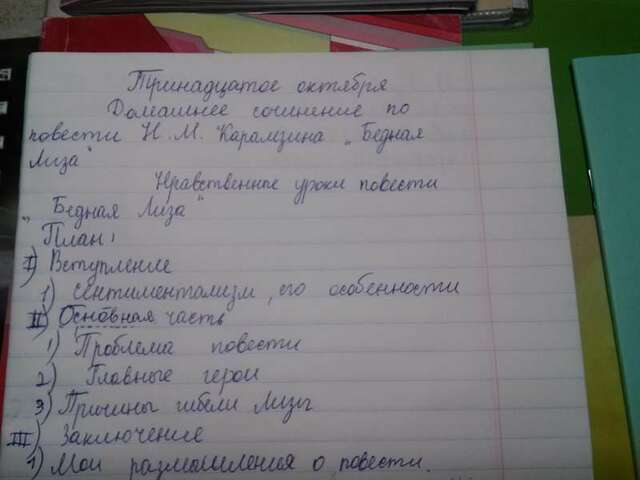 Тринадцатое октября
Домашнее сочинение по
повести Н. М. Карамзина „Бедная
Лиза"
Нравственные уроки повести
„Бедная Лиза"
План:
I) Вступление
1) Сентиментализм, его особенности
II) Основная часть
1) Проблема повести
2) Главные герои
3) Причины гибели Лизы
III) Заключение
1) Мои размышления о повести.